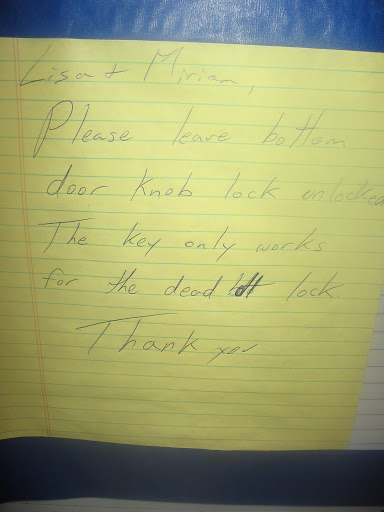 Lisa + Miriam,
Please leave bottom
door knob lock unlocked
The key only works
for the dead bolt lock.
Thank you